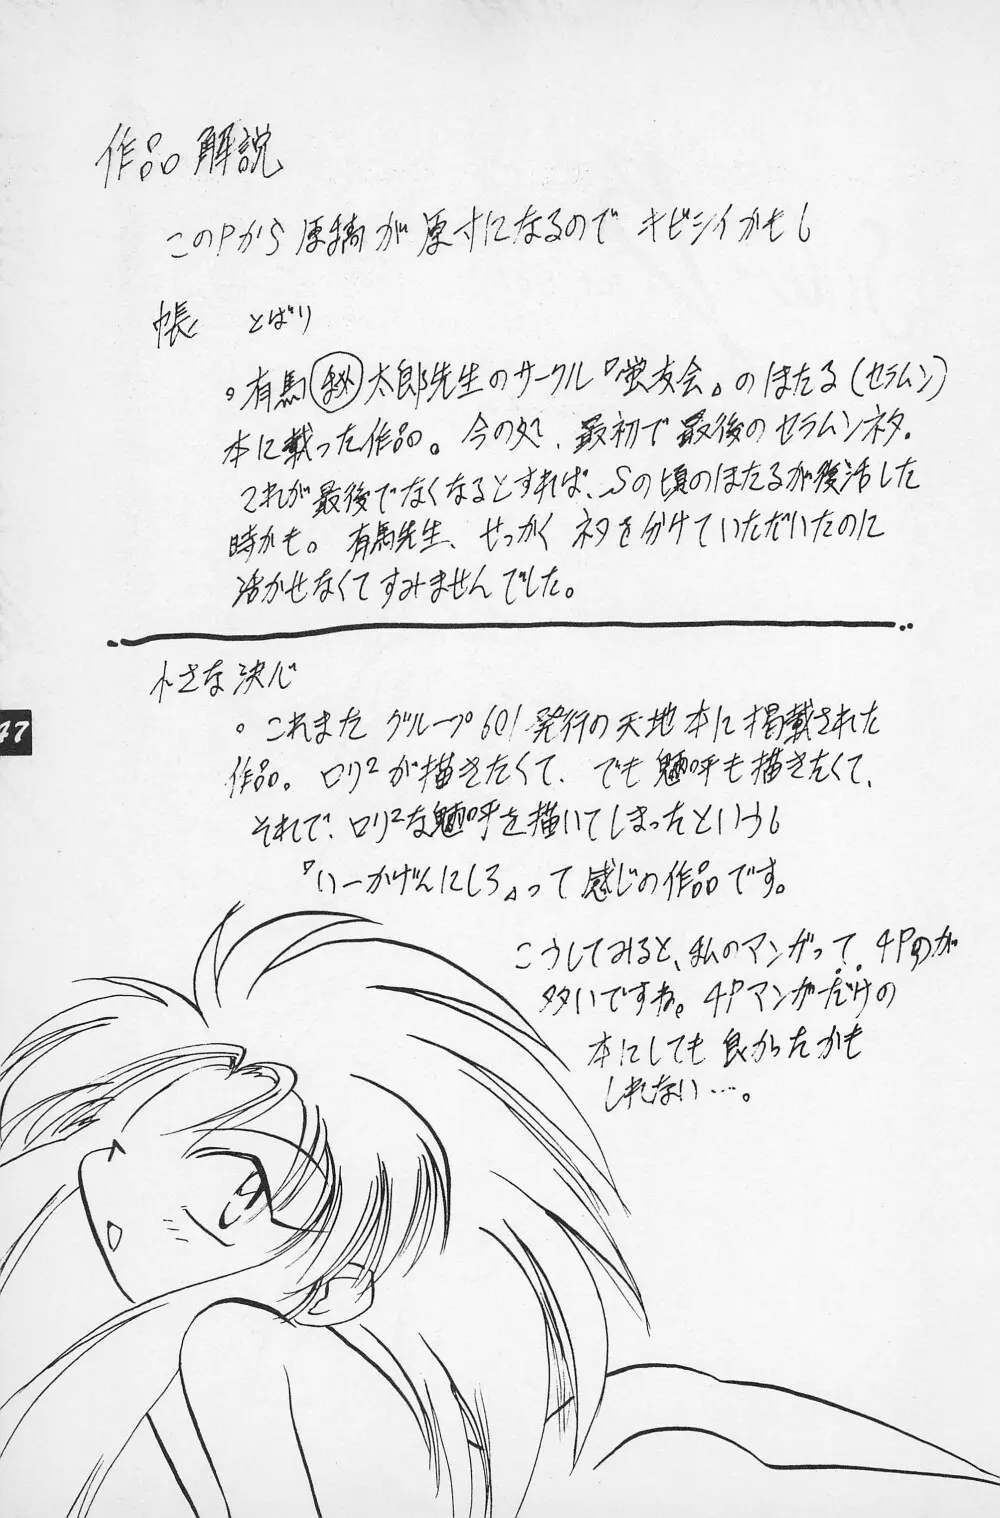 作品解説
このPから原稿が原寸になるのでキビシイかもし
帳 とばり
・有馬㊙太郎先生のサークル『蛍友会』のほたる(セラムン)
本に載った作品。今の処、最初で最後のセラムンネタ。
これが最後でなくなるとすれば、Sの頃のほたるが復活した
時かも。有馬先生、せっかくネタを分けていただいたのに
活かせなくてすみませんでした。
小さな決心
47
・これまたグループ601発行の天地本に掲載された
作品。ロリ²が描きたくて、でも魎呼も描きたくて、
それで、ロリ²な魎呼を描いてしまったというし
『いーかげんにしろ』って感じの作品です。
こうしてみると、私のマンガって、4Pのが
多いですね。4Pマンガだけの
本にしても良かったかも
しれない…。